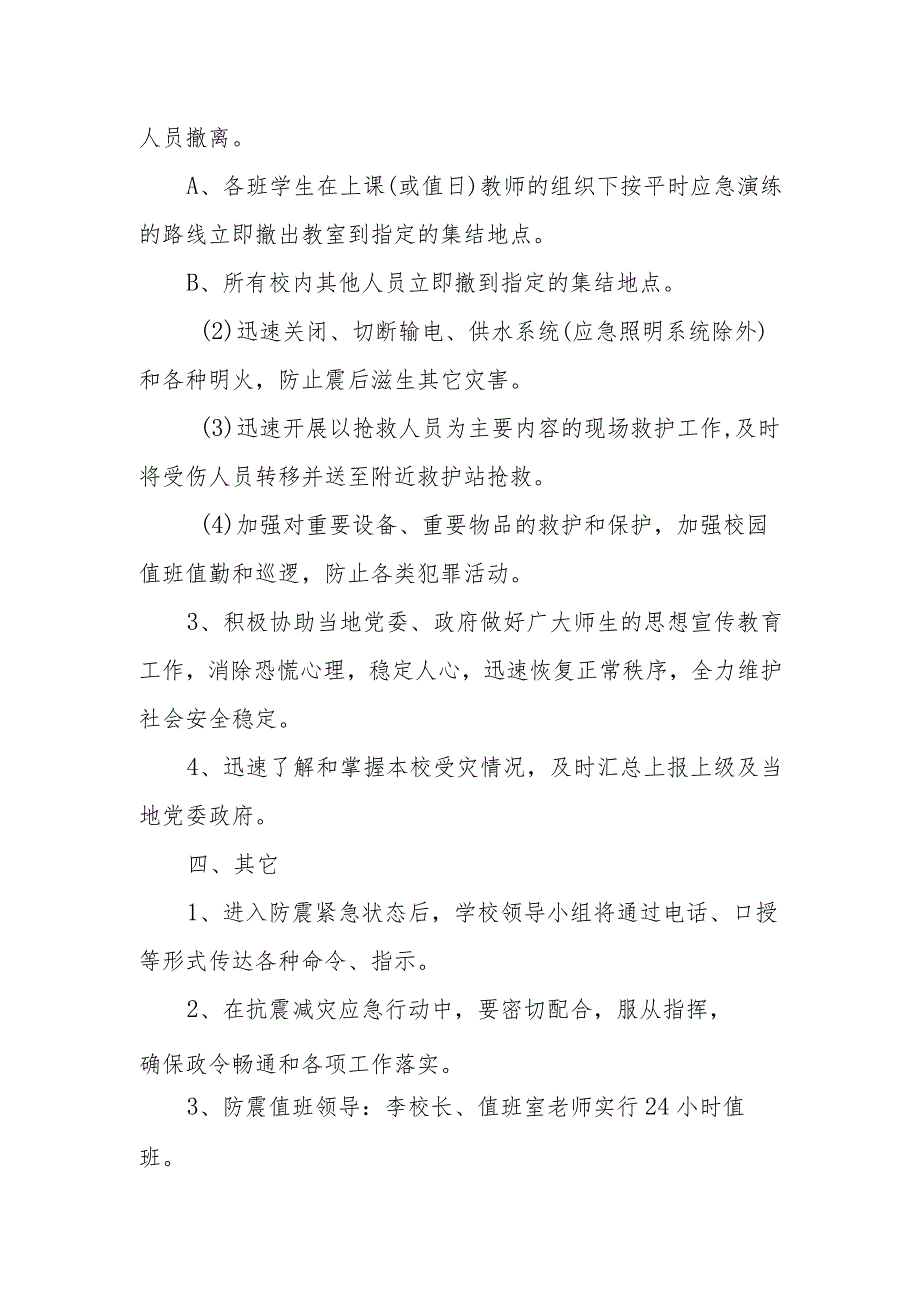 人员撤离。
A、各班学生在上课(或值日)教师的组织下按平时应急演练
的路线立即撤出教室到指定的集结地点。
B、所有校内其他人员立即撤到指定的集结地点。
(2)迅速关闭、切断输电、供水系统(应急照明系统除外)
和各种明火，防止震后滋生其它灾害。
(3)迅速开展以抢救人员为主要内容的现场救护工作,及时
将受伤人员转移并送至附近救护站抢救。
(4)加强对重要设备、重要物品的救护和保护，加强校园
值班值勤和巡逻，防止各类犯罪活动。
3、积极协助当地党委、政府做好广大师生的思想宣传教育
工作，消除恐慌心理，稳定人心，迅速恢复正常秩序，全力维护
社会安全稳定。
4、迅速了解和掌握本校受灾情况，及时汇总上报上级及当
地党委政府。
四、其它
1、进入防震紧急状态后，学校领导小组将通过电话、口授
等形式传达各种命令、指示。
2、在抗震减灾应急行动中，要密切配合，服从指挥，
确保政令畅通和各项工作落实。
3、防震值班领导：李校长、值班室老师实行 24 小时值
班。